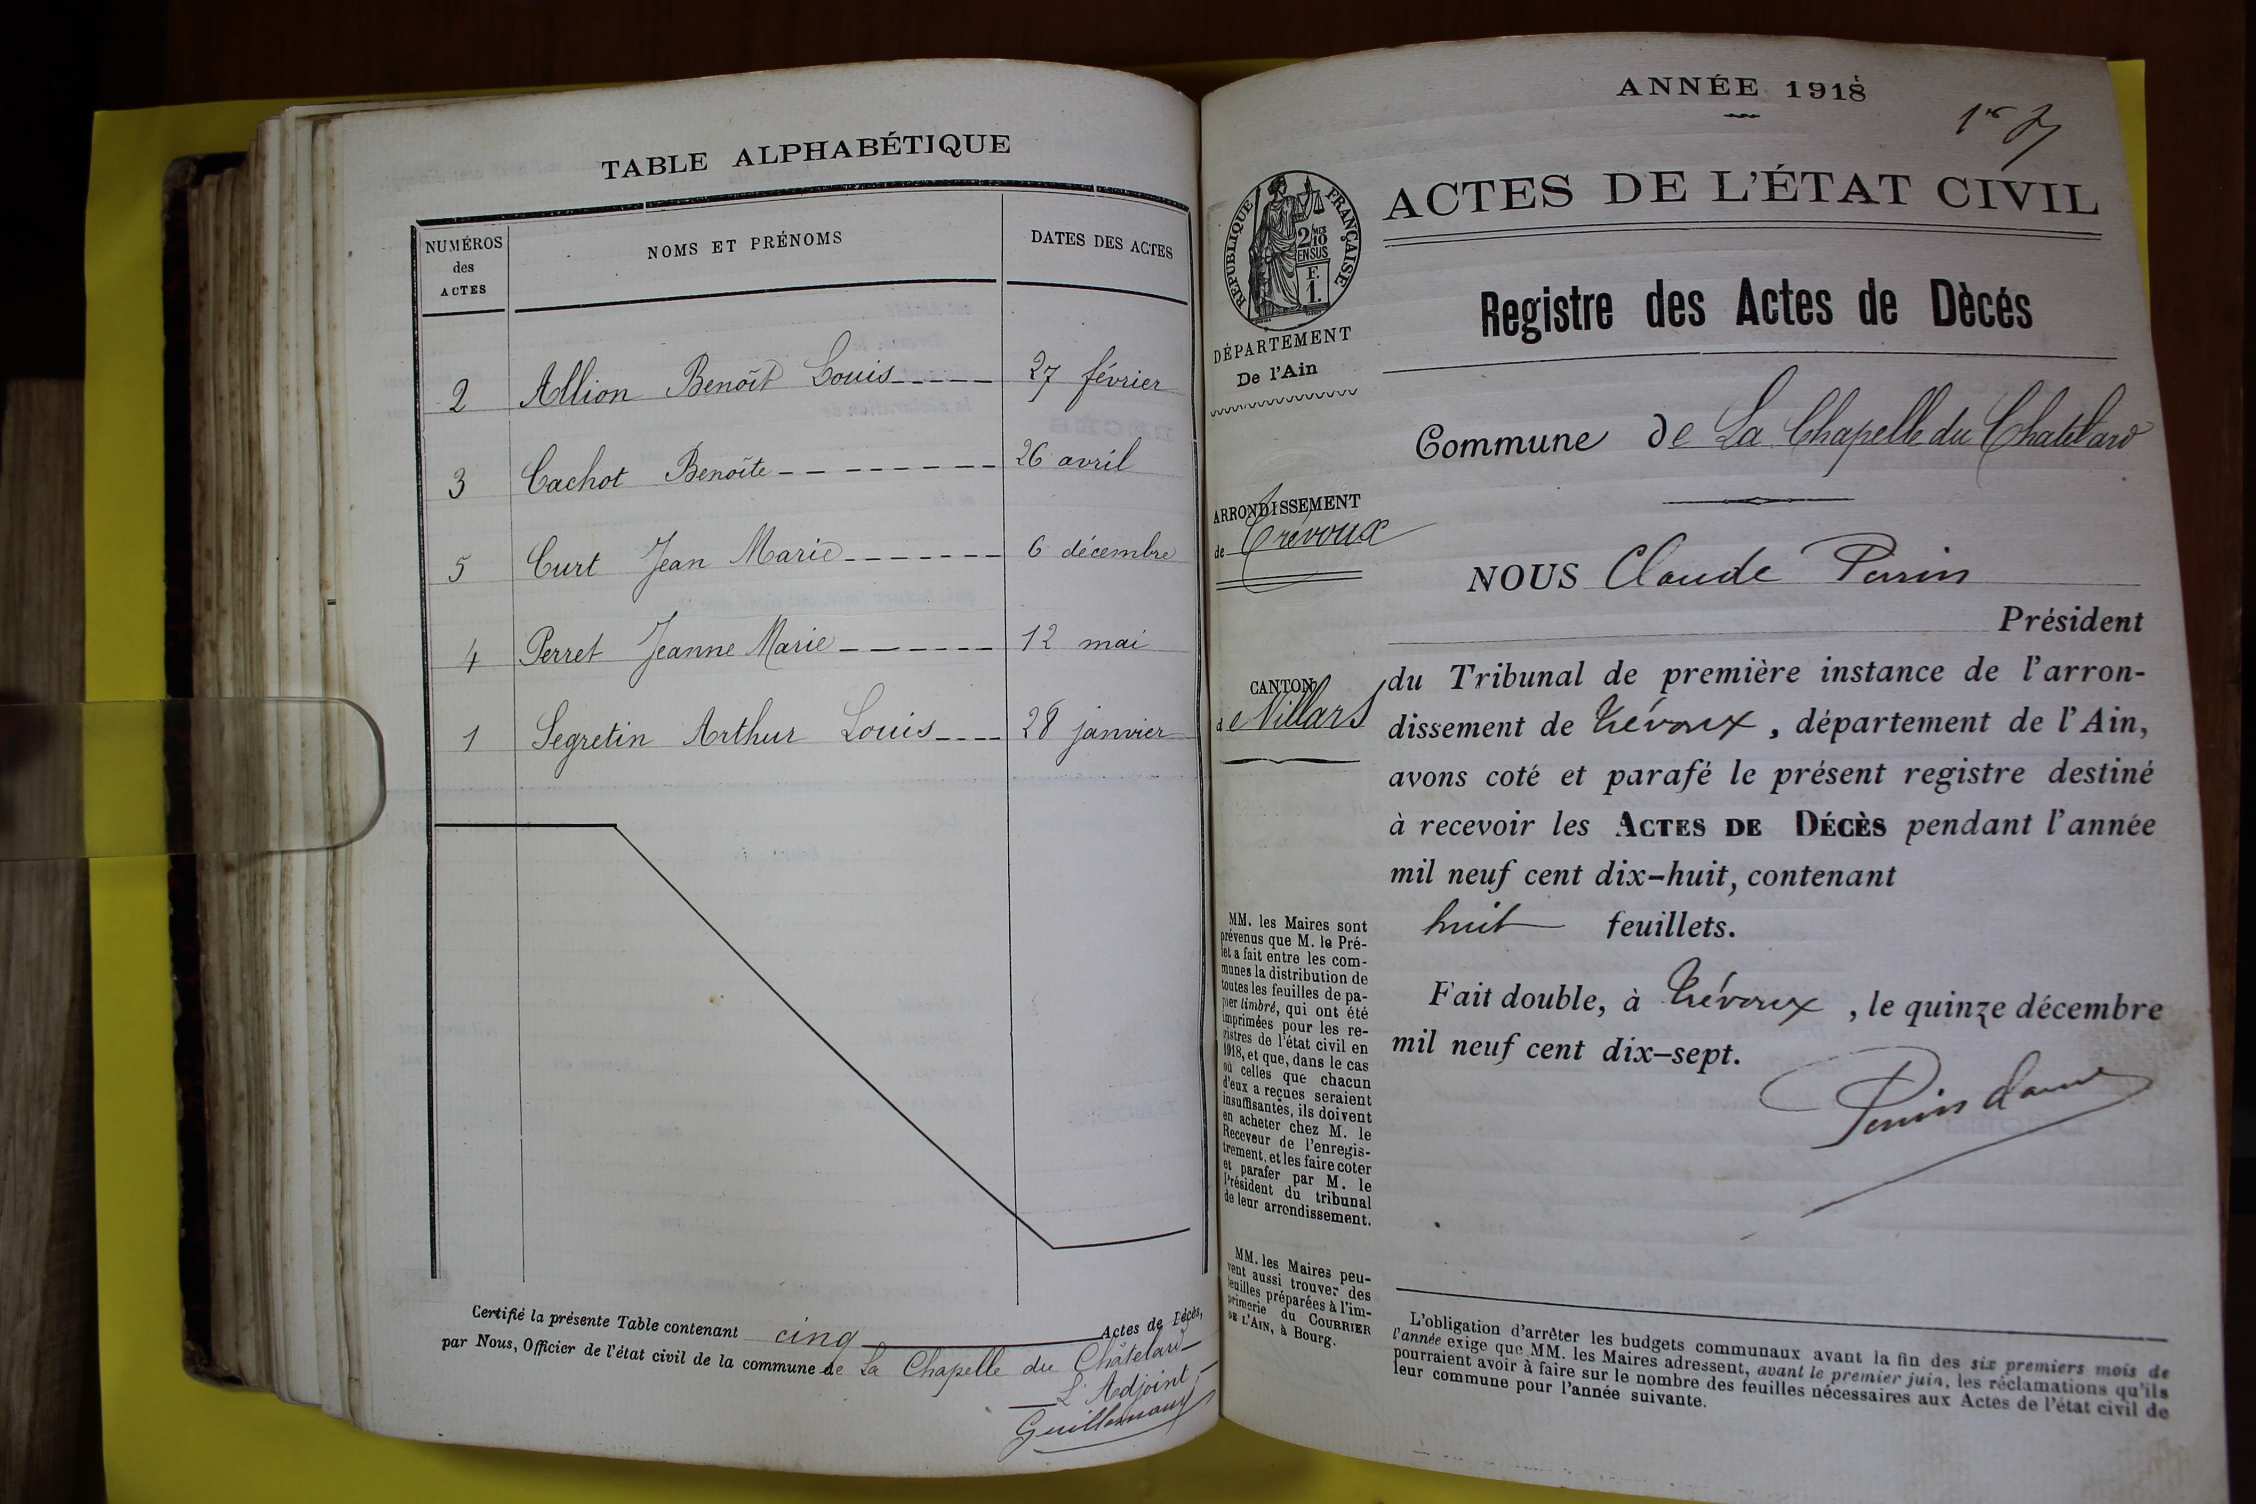 TABLE ALPHABÉTIQUE
NUMÉROS des ACTES
NOMS ET PRÉNOMS
DATES DES ACTES
2 Allion Benoît Louis 27 février
3 Cachot Benoîte 26 avril
5 Curt Jean Marie 6 décembre
4 Perret Jeanne Marie 12 mai
1 Segretin Arthur Louis 28 janvier
Certifié la présente Table contenant cinq Actes de Décès,
par Nous, Officier de l'état civil de la commune de La Chapelle du Châtelard
L'Adjoint,
Guillermaux
ANNÉE 1918
1er
ACTES DE L'ÉTAT CIVIL
RÉPUBLIQUE FRANÇAISE
2/10 MES
EN SUS
F.
1.
DÉPARTEMENT
De l'Ain
Registre des Actes de Dècés
Commune de La Chapelle du Chatelard
ARRONDISSEMENT
de Trévoux
NOUS Claude Perrin
Président
CANTON
de Villars
du Tribunal de première instance de l'arron-
dissement de Trévoux, département de l'Ain,
avons coté et parafé le présent registre destiné
à recevoir les ACTES DE DÉCÈS pendant l'année
mil neuf cent dix-huit, contenant
huit feuillets.
Fait double, à Trévoux, le quinze décembre
mil neuf cent dix-sept.
Perrin Claude
MM. les Maires sont
prévenus que M. le Pré-
fet a fait entre les com-
munes la distribution de
toutes les feuilles de pa-
pier timbré, qui ont été
imprimées pour les re-
gistres de l'état civil en
1918, et que, dans le cas
où celles que chacun
d'eux a reçues seraient
insuffisantes, ils doivent
en acheter chez M. le
Receveur de l'enregis-
trement, et les faire coter
et parafer par M. le
Président du tribunal
de leur arrondissement.
MM. les Maires peu-
vent aussi trouver des
feuilles préparées à l'im-
primerie du COURRIER
DE L'AIN, à Bourg.
L'obligation d'arrêter les budgets communaux avant la fin des six premiers mois de
l'année exige que MM. les Maires adressent, avant le premier juin, les réclamations qu'ils
pourraient avoir à faire sur le nombre des feuilles nécessaires aux Actes de l'état civil de
leur commune pour l'année suivante.